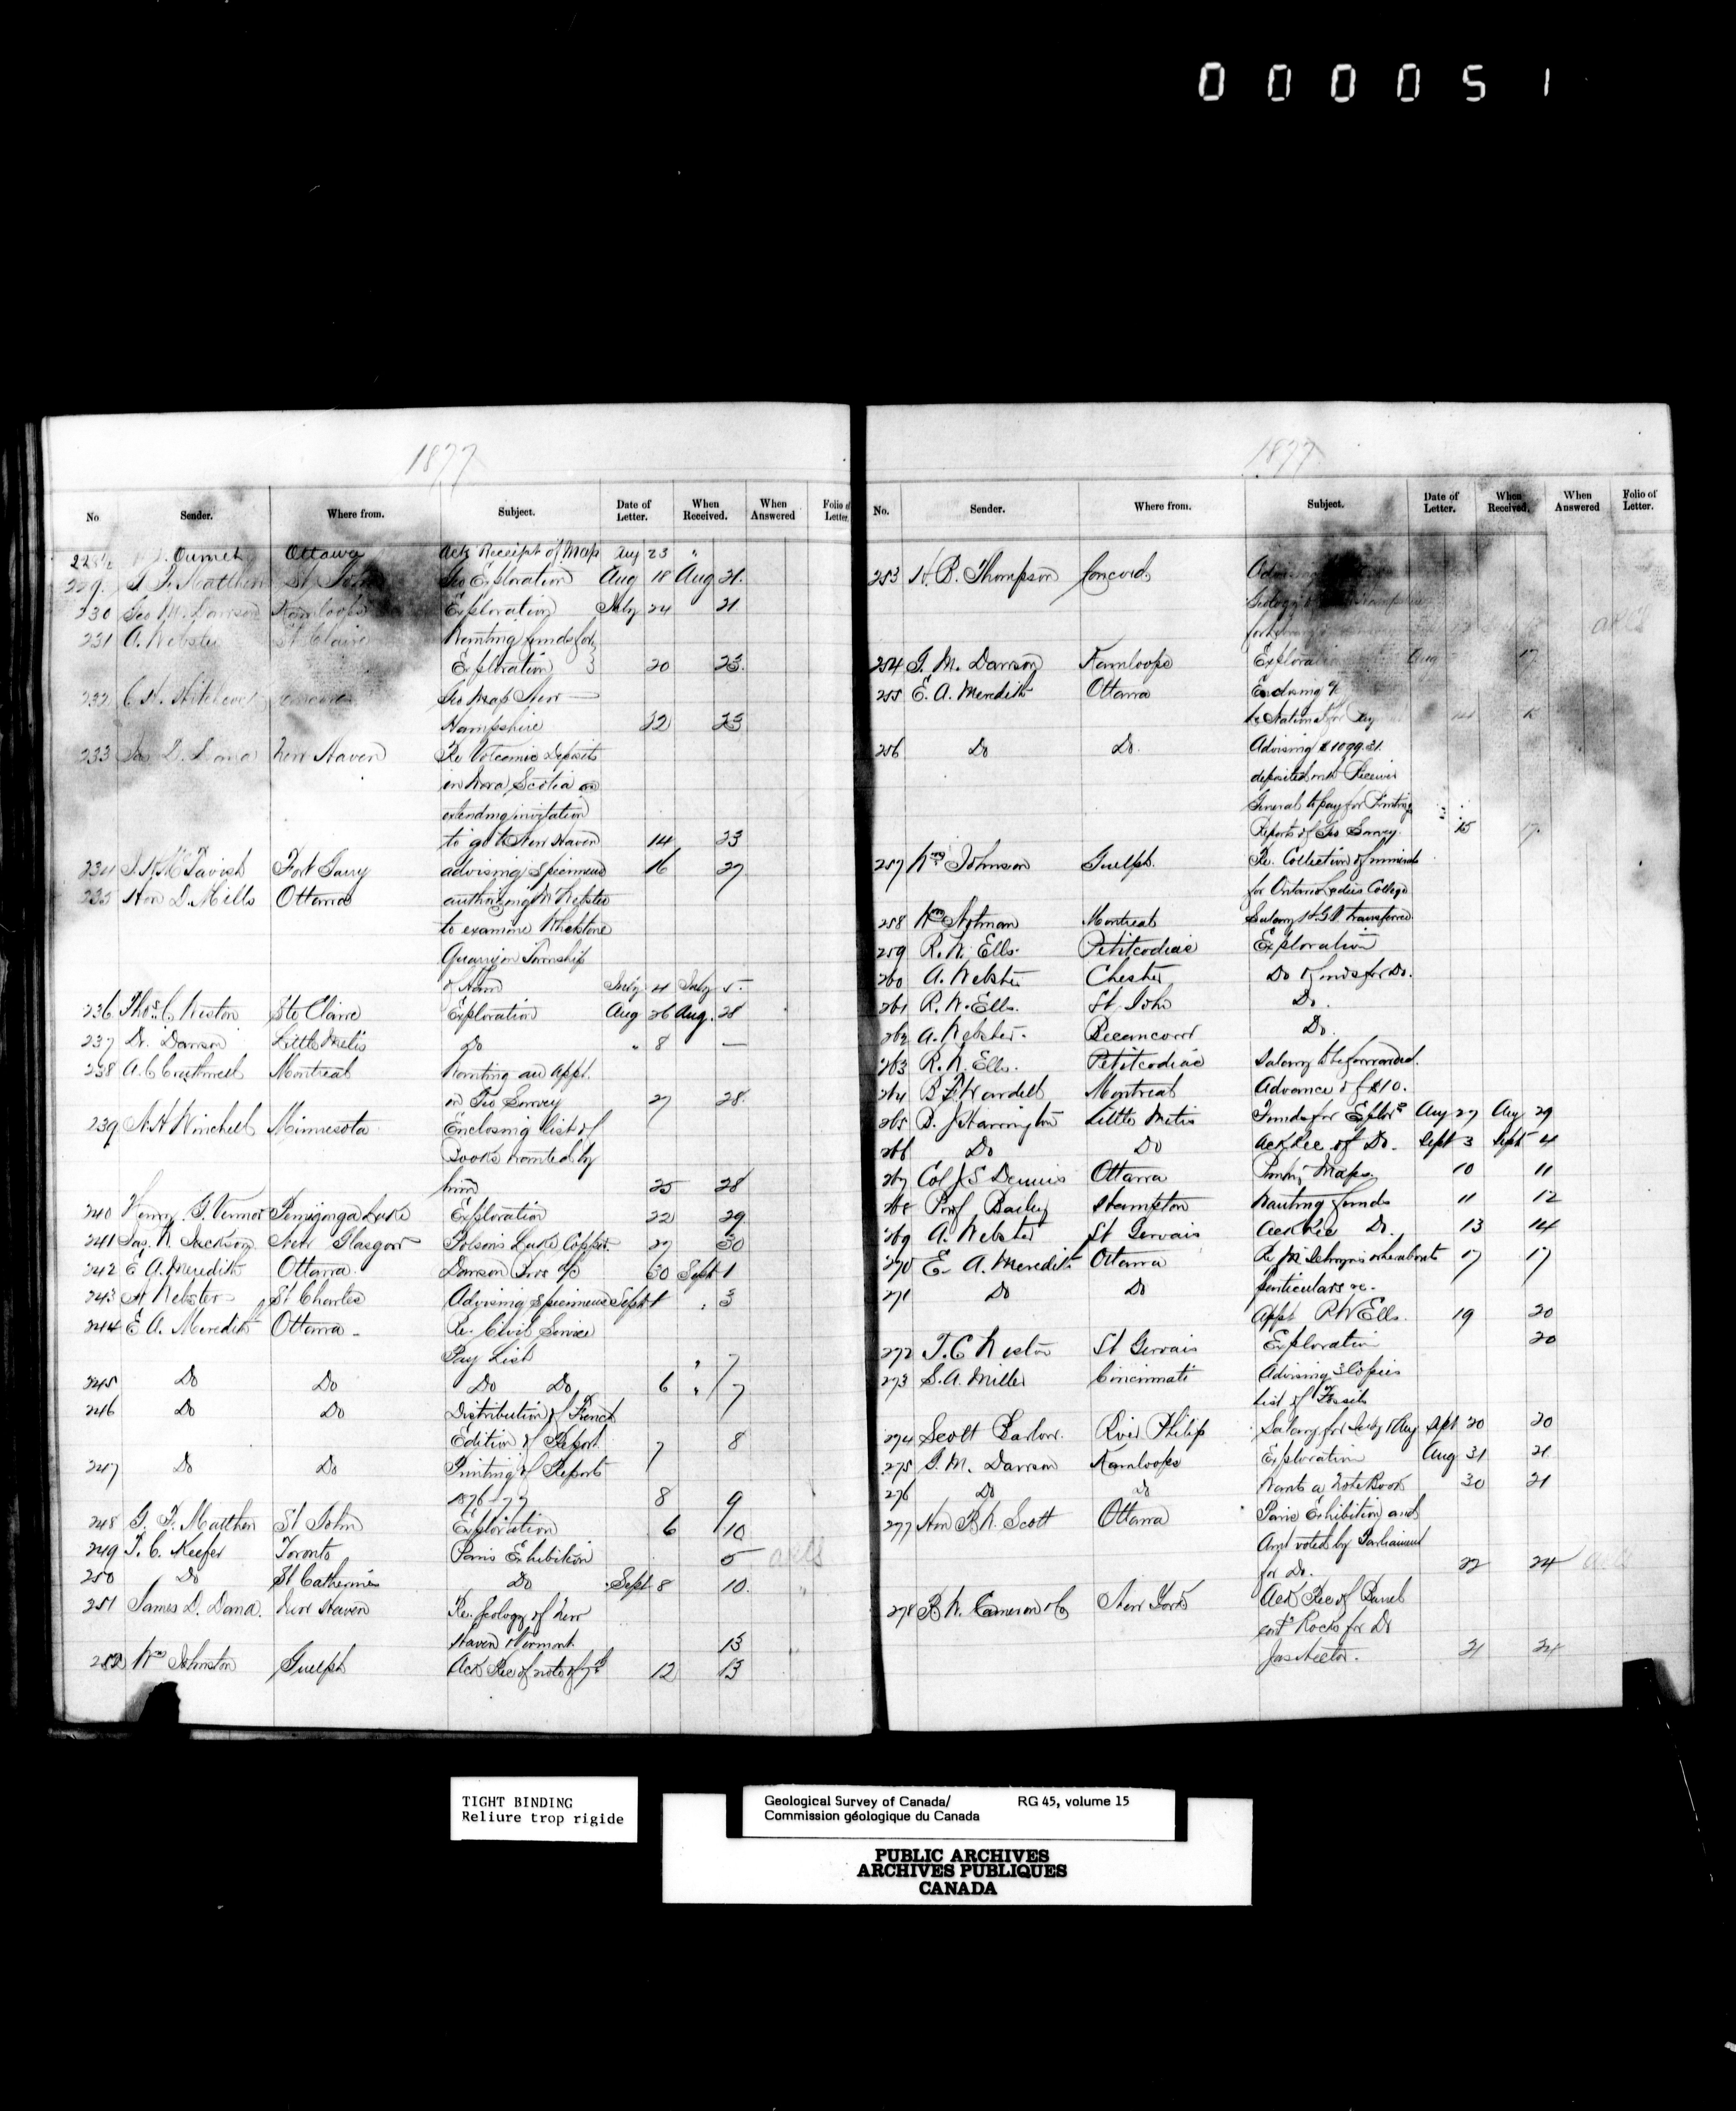 000051
1877
No Sender. Where from. Subject. Date of Letter. When Received. When Answered Folio of Letter.
228½ Ouimet Ottawa Ack Receipt of Map Aug 23 "
229. G. F. Matthew St John Geo Exploration Aug 18 Aug 21.
230 Geo M. Dawson Kamloops Exploration July 24 21
231 A. Webster St Claire Wanting funds for
Exploration 20 23.
232 C. H. Hitchcock Geo Map New
Hampshire 22 23
233 Jas D. Dana New Haven Re Volcanic Deposits
in Nova Scotia
extending invitation
to go to New Haven 14 23
234 McTavish Fort Garry advising specimens 16 27
235 Hon D. Mills Ottawa authorizing Mr Webster
to examine Whetstone
Quarry in Township
of Ham July 4 July 5
236 Thos. C Weston Ste Claire Exploration Aug 26 Aug. 28
237 Dr. Dawson Little Metis Do " 8 —
238 A. C Montreal Wanting an Appt.
on Geo Survey 27 28.
239 N. H Winchell Minnesota Enclosing list of
Books wanted by
him 25 28
240 Henry G. Vennor Lake Exploration 22 29
241 Jas. N. Jackson New Glasgow Polsons Lake Copper 27 30
242 E A. Meredith Ottawa. Dawson Bros a/c 30 Sept 1
243 A Webster St Charles Advising specimens Sept 1 " 3
244 E A. Meredith Ottawa Re. Civil Service
Pay List " 7
245 Do Do Do Do 6 " 7
246 Do Do Distribution of French
Edition of Report 7 8
247 Do Do Printing of Reports
1876-77 8 9
248 G. F. Matthew St John Exploration 6 10
249 T. C. Keefer Toronto Paris Exhibition 5
250 Do St Catherines Do Sept 8 10.
251 James D. Dana. New Haven Re. Geology of New
Haven & Vermont. 13
252 Wm Johnston Guelph Ack Rec of note of 7th 12 13
1877
No. Sender. Where from. Subject. Date of Letter. When Received. When Answered Folio of Letter.
253 A. B. Thompson Concord.
Geology
254 G. M. Dawson Kamloops Exploration Aug 17
255 E. A. Meredith Ottawa Enclosing
14 15
256 Do Do. Advising $1099.31.
deposited with Receiver
General to pay for Printing
Reports of Geo Survey. 15 17.
257 Wm Johnson Guelph. Re. Collection of minerals
for Ontario Ladies College
258 Wm Notman Montreal Salary transferred
259 R. W. Ells. Petitcodiac Exploration
260 A. Webster Chester Do & funds for Do.
261 R. W. Ells. St. John Do.
262 A. Webster. Becancour Do.
263 R. W. Ells. Petitcodiac Salary to be forwarded.
264 Montreal Advance of $10.
265 B. J Harrington Little Metis Funds for Explorn Aug 27 Aug 29
266 Do Do Ack Rec of Do. Sept 3 Sept 4
267 Col J S Dennis Ottawa Maps. 10 11
268 Prof Bailey Hampton Wanting funds 11 12
269 A. Webster St Gervais Ack Rec Do. 13 14
270 E. A. Meredith Ottawa Re whereabouts 17 17
271 Do Do particulars re.
Appt R W Ells. 19 20
272 T. C Weston St Gervais Exploration 20
273 S. A. Miller Cincinnati Advising 3 Copies
List of Fossils
274 Scott Barlow. River Philip Salary for July & Aug Sept 20 20
275 G. M. Dawson Kamloops Exploration Aug 31 21
276 Do Do Wants a Note Book 30 21
277 Hon R. W. Scott Ottawa Paris Exhibition and
Amt voted by Parliament
for Do. 22 24
278 Cameron & Co New York Ack Rec of Barrel
Rocks for Dr
Jas Hector. 21 24
TIGHT BINDING
Reliure trop rigide
Geological Survey of Canada/ RG 45, volume 15
Commission géologique du Canada
PUBLIC ARCHIVES
ARCHIVES PUBLIQUES
CANADA